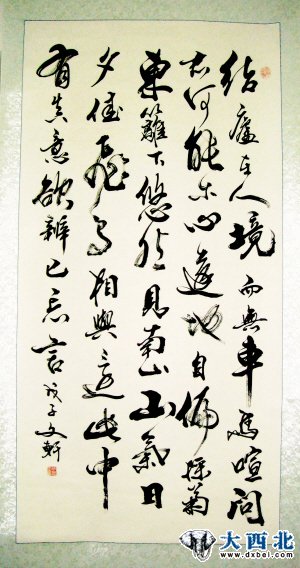 结廬在人境而無車馬喧问
君何能尔心遠地自偏採菊
東籬下悠然見南山山氣日
夕佳飛鳥相與還此中
有真意欲辨已忘言 子文軒
大西北
www.dxbei.com